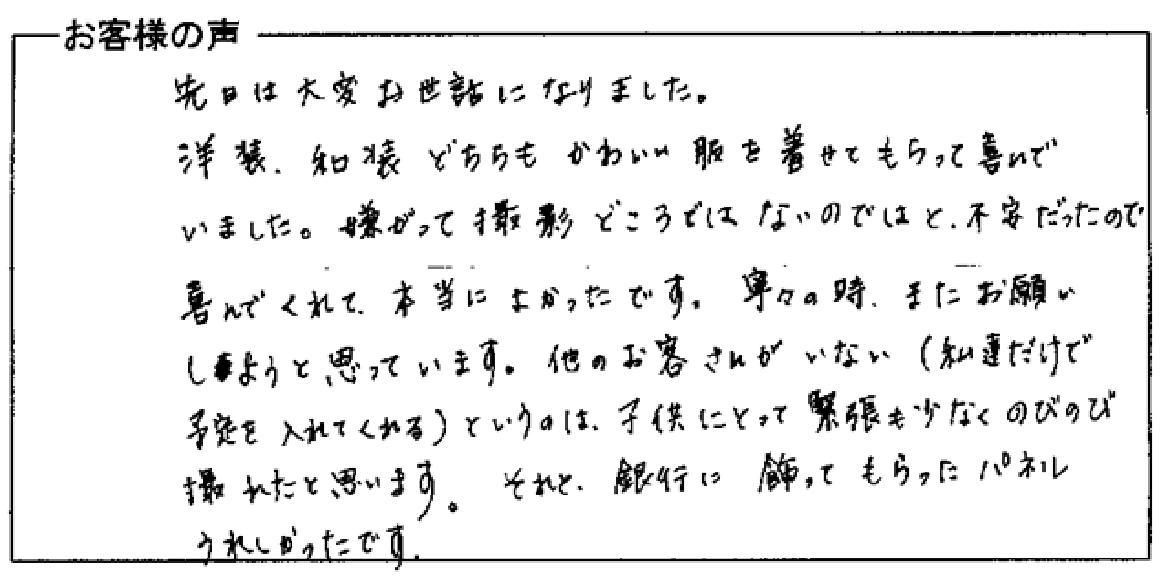 お客様の声
先日は大変お世話になりました。
洋装、和装どちらもかわいい服を着せてもらって喜んで
いました。嫌がって撮影どころではないのではと、不安だったので
喜んでくれて、本当によかったです。寧々の時、またお願い
しようと思っています。他のお客さんがいない(私達だけで
予定を入れてくれる)というのは、子供にとって緊張も少なくのびのび
撮れたと思います。それと、銀行に飾ってもらったパネル
うれしかったです。